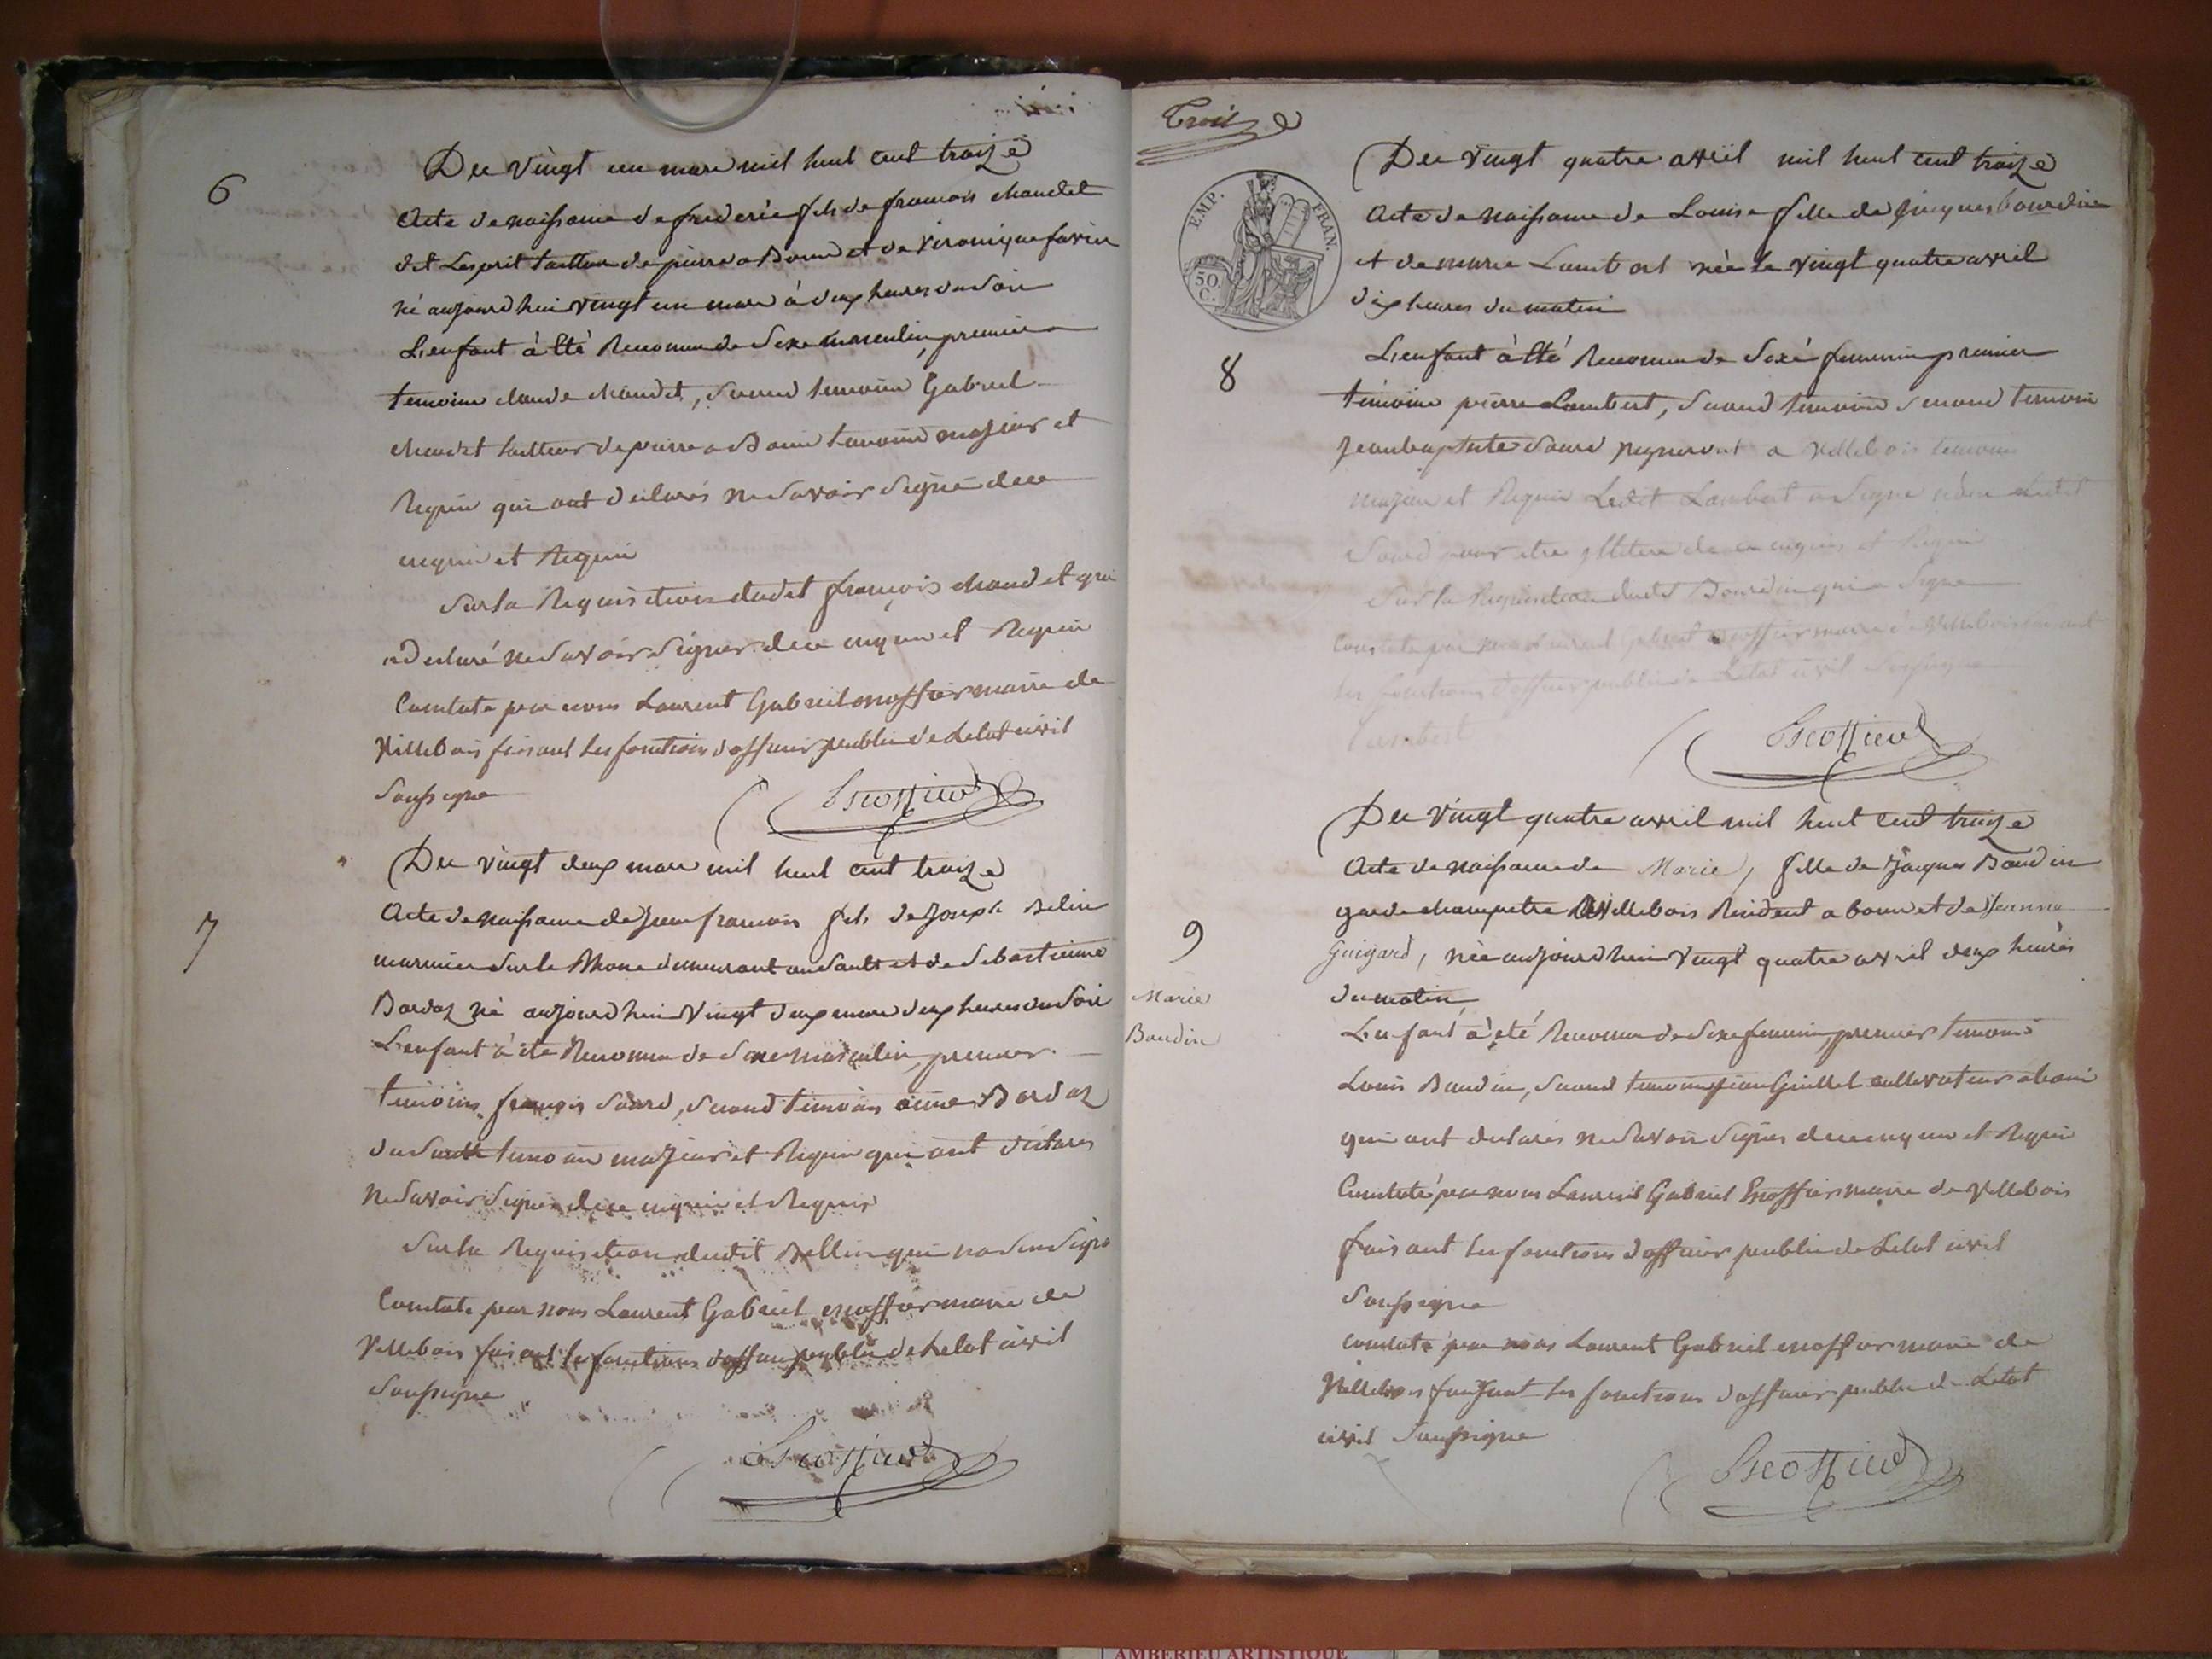 6
Du vingt un mars mil huit cent traize
acte de naissance de frederic fils de francois chaudet
dit Lesprit tailleur de pierre a Bouis et de veronique favier
né aujourd'hui vingt un mars à deux heures du soir
L'enfant à été reconnu de sexe masculin, premier
temoins claude chaudet, second temoins Gabriel
chaudet tailleur de pierre a Bouis temoins majeur et
requis qui ont déclarés ne savoir signé de ce
enquis et requis
Sur la requisition dudit françois chaudet qui
a déclaré ne savoir signer de ce enquis et requis
Constaté par nous Laurent Gabriel escoffier maire de
Villebois faisant les fonctions d'officier public de l'etat civil
soussigné
Escoffier
7
Du vingt deux mars mil huit cent traize
acte de naissance de Jean francois fils de Joseph Belin
marinier sur le Rhone demeurant au Sault et de Sebastienne
Bardoz né aujourd'hui vingt deux mars deux heures du soir
L'enfant à été reconnu de sexe masculin, premier
temoins françois Suard, second temoins aimé Bardoz
du Sault temoins majeur et requis qui ont déclarés
ne savoir signer de ce enquis et requis
Sur la requisition dudit Bellin qui na su signé
Constaté par nous Laurent Gabriel escoffier maire de
Villebois faisant les fonctions d'officier public de l'etat civil
soussigné
Escoffier
Trois
EMP. FRAN.
50. C.
Du vingt quatre avril mil huit cent traize
acte de naissance de Louise fille de jacques bourdin
et de marie Lambert née le vingt quatre avril
dix heures du matin
8
L'enfant à été reconnu de sexe feminin premier
témoins pierre Lambert, second temoins second temoin
jean baptiste Suard a Villebois temoins
majeur et requis Ledit Lambert a signé non Ledit
Suard pour etre illitéré de ce enquis et requis
Sur la requisition dudit Bourdin qui a signé
Constaté par nous Laurent Gabriel escoffier maire de Villebois faisant
les fonctions d'officier public de l'etat civil soussigné
Lambert
Escoffier
Du vingt quatre avril mil huit cent traize
acte de naissance de Marie, fille de Jacques Baudin
garde champetre a Villebois Résident a bouis et de Jeanne
9
Guigard, née aujourd'hui vingt quatre avril deux heures
Marie
Baudin
du matin
L'enfant à été reconnu de sexe feminin, premier temoins
Louis Baudin, second temoins jean Guillet cultivateur a bouis
qui ont déclarés ne savoir signer de ce enquis et requis
Constaté par nous Laurent Gabriel Escoffier maire de Villebois
faisant les fonctions d'officier public de L'etat civil
soussigné
constaté par nous Laurent Gabriel escoffier maire de
Villebois faisant les fonctions d'officier public de Letat
civil soussigné
Escoffier
AMBERIEU ARTISTIQUE